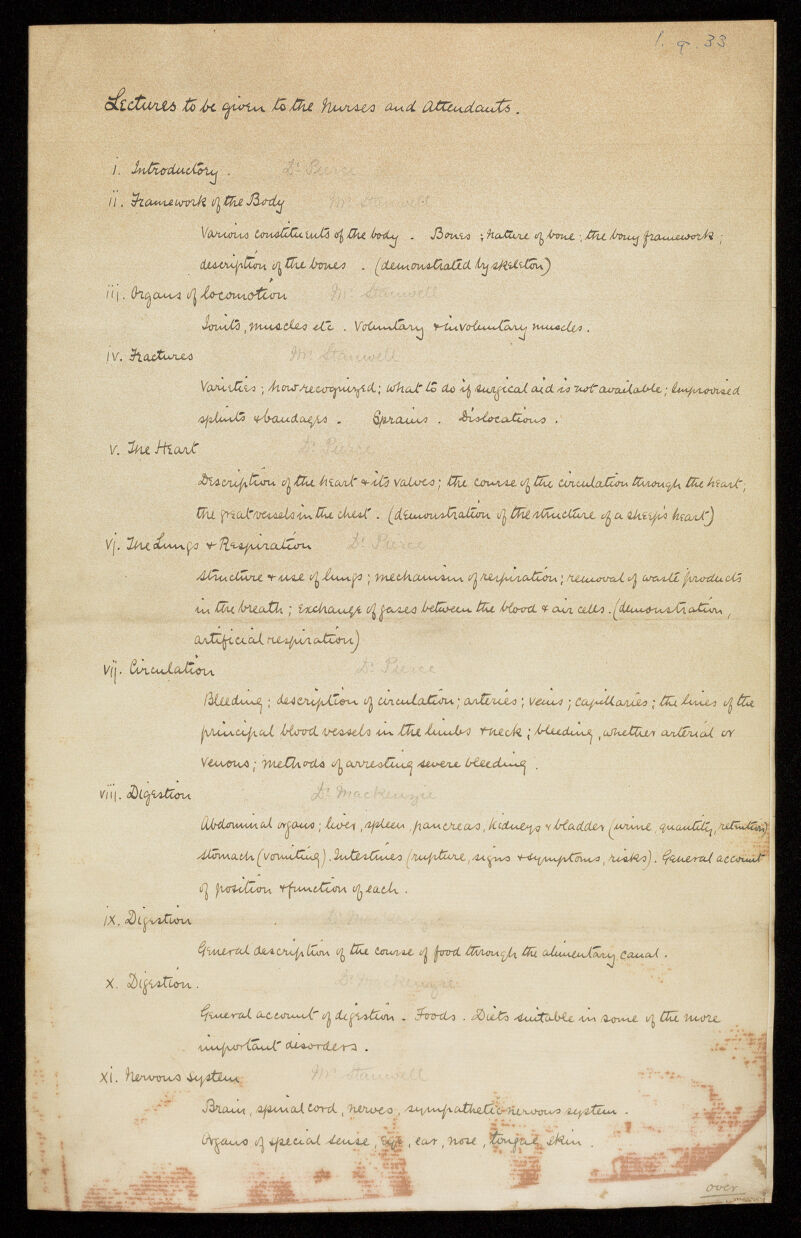 1. 9. 33
Lectures to be given to the Nurses and Attendants.
i. Introductory. Dr Pierce
ii. Framework of the Body Mr Stanwell
Various constituents of the body. Bones; nature of bone; the bony framework;
description of the bones. (demonstrated by skeleton)
iij. Organs of locomotion Mr Stanwell
Joints, muscles etc. Voluntary & involuntary muscles.
iv. Fractures Mr Stanwell
Varieties; how recognized; what to do if surgical aid is not available; Improvised
splints & bandages. Sprains. Dislocations.
v. The Heart Dr Pierce
Description of the heart & its valves; the course of the circulation through the heart;
the great vessels in the chest. (demonstration of the structure of a sheep's heart)
vj. The Lungs & Respiration Dr Pierce
Structure & use of lungs; mechanism of respiration; removal of waste products
in the breath; exchange of gases between the blood & air cells. (demonstration,
artificial respiration)
vij. Circulation Dr Pierce
Bleeding; description of circulation; arteries; veins; capillaries; the lines of the
principal blood vessels in the limbs & neck; bleeding, whether arterial or
venous; methods of arresting severe bleeding.
viij. Digestion Dr Mackenzie
Abdominal organs; liver, spleen, pancreas, kidneys & bladder (urine, quantity, retention)
Stomach (vomiting). Intestines (rupture, signs & symptoms, risks). General account
of position & function of each.
ix. Digestion Dr Mackenzie
General description of the course of food through the alimentary canal.
x. Digestion. Dr Mackenzie
General account of digestion. Foods. Diets suitable in some of the more
important disorders.
xi. Nervous System Mr Stanwell
Brain, spinal cord, nerves, sympathetic nervous system.
Organs of special sense, Eye, ear, nose, tongue, skin.
over